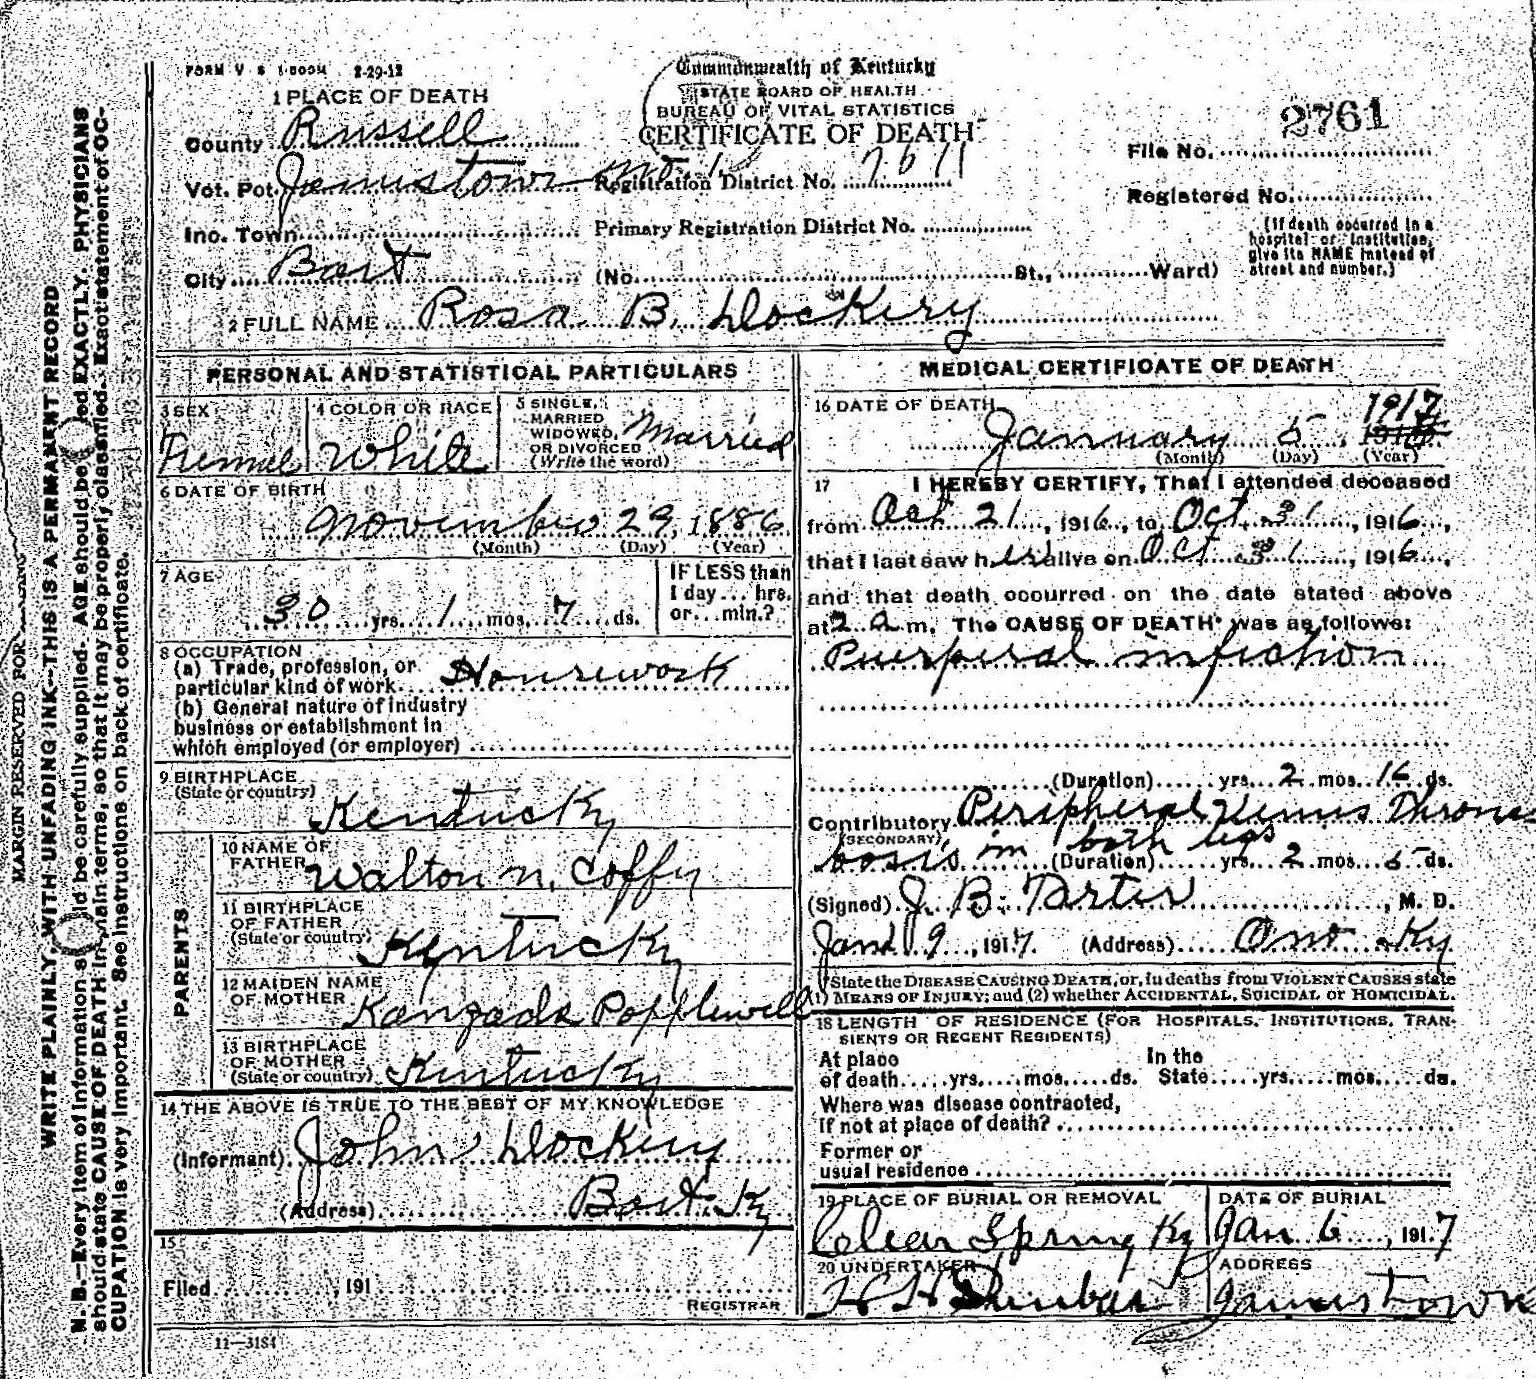 FORM V S 1-500M 2-29-12
Commonwealth of Kentucky
STATE BOARD OF HEALTH
BUREAU OF VITAL STATISTICS
CERTIFICATE OF DEATH
2761
File No.
Registered No.
(If death occurred in a
hospital or institution,
give its NAME instead of
street and number.)
1 PLACE OF DEATH
County Russell
Vot. Pot. Jamestown No. 1 Registration District No. 7611
Inc. Town Primary Registration District No.
City Bart (No. St., Ward)
2 FULL NAME Rosa B. Dockery
PERSONAL AND STATISTICAL PARTICULARS
3 SEX Femel
4 COLOR OR RACE White
5 SINGLE, MARRIED WIDOWED, OR DIVORCED (Write the word) Married
6 DATE OF BIRTH
November 29, 1886
(Month) (Day) (Year)
7 AGE
30 yrs. 1 mos. 7 ds.
IF LESS than
1 day... hrs.
or... min.?
8 OCCUPATION
(a) Trade, profession, or
particular kind of work Housework
(b) General nature of industry
business or establishment in
which employed (or employer)
9 BIRTHPLACE
(State or country)
Kentucky
PARENTS
10 NAME OF
FATHER
Walton N. Coffy
11 BIRTHPLACE
OF FATHER
(State or country) Kentucky
12 MAIDEN NAME
OF MOTHER
Kanzada Popplewell
13 BIRTHPLACE
OF MOTHER
(State or country) Kentucky
14 THE ABOVE IS TRUE TO THE BEST OF MY KNOWLEDGE
(Informant) John Dockery
(Address) Bart. Ky
15
Filed 191
REGISTRAR
11-3184
MEDICAL CERTIFICATE OF DEATH
16 DATE OF DEATH 1917
January 5, 1916
(Month) (Day) (Year)
17 I HEREBY CERTIFY, That I attended deceased
from Oct 21, 1916, to Oct. 31, 1916,
that I last saw her alive on Oct 31, 1916,
and that death occurred on the date stated above
at 2 a m. The CAUSE OF DEATH was as follows:
Puerperal infection
(Duration) yrs. 2 mos. 16 ds.
Contributory Peripheral Venus Throm
(SECONDARY) bosis in both legs
(Duration) yrs. 2 mos. 5 ds.
(Signed) J. B. Tarter, M. D.
Jan 9, 1917. (Address) Ono Ky
State the DISEASE CAUSING DEATH, or, in deaths from VIOLENT CAUSES state
(1) MEANS OF INJURY; and (2) whether ACCIDENTAL, SUICIDAL or HOMICIDAL.
18 LENGTH OF RESIDENCE (FOR HOSPITALS, INSTITUTIONS, TRAN-
SIENTS OR RECENT RESIDENTS)
At place In the
of death yrs. mos. ds. State yrs. mos. ds.
Where was disease contracted,
If not at place of death?
Former or
usual residence
19 PLACE OF BURIAL OR REMOVAL DATE OF BURIAL
Clear Spring Ky Jan 6, 1917
20 UNDERTAKER ADDRESS
H H Dunbar Jamestown
MARGIN RESERVED FOR
WRITE PLAINLY, WITH UNFADING INK--THIS IS A PERMANENT RECORD
N. B.--Every item of information should be carefully supplied. AGE should be stated EXACTLY. PHYSICIANS
should state CAUSE OF DEATH in plain terms, so that it may be properly classified. Exact statement of OC-
CUPATION is very important. See instructions on back of certificate.